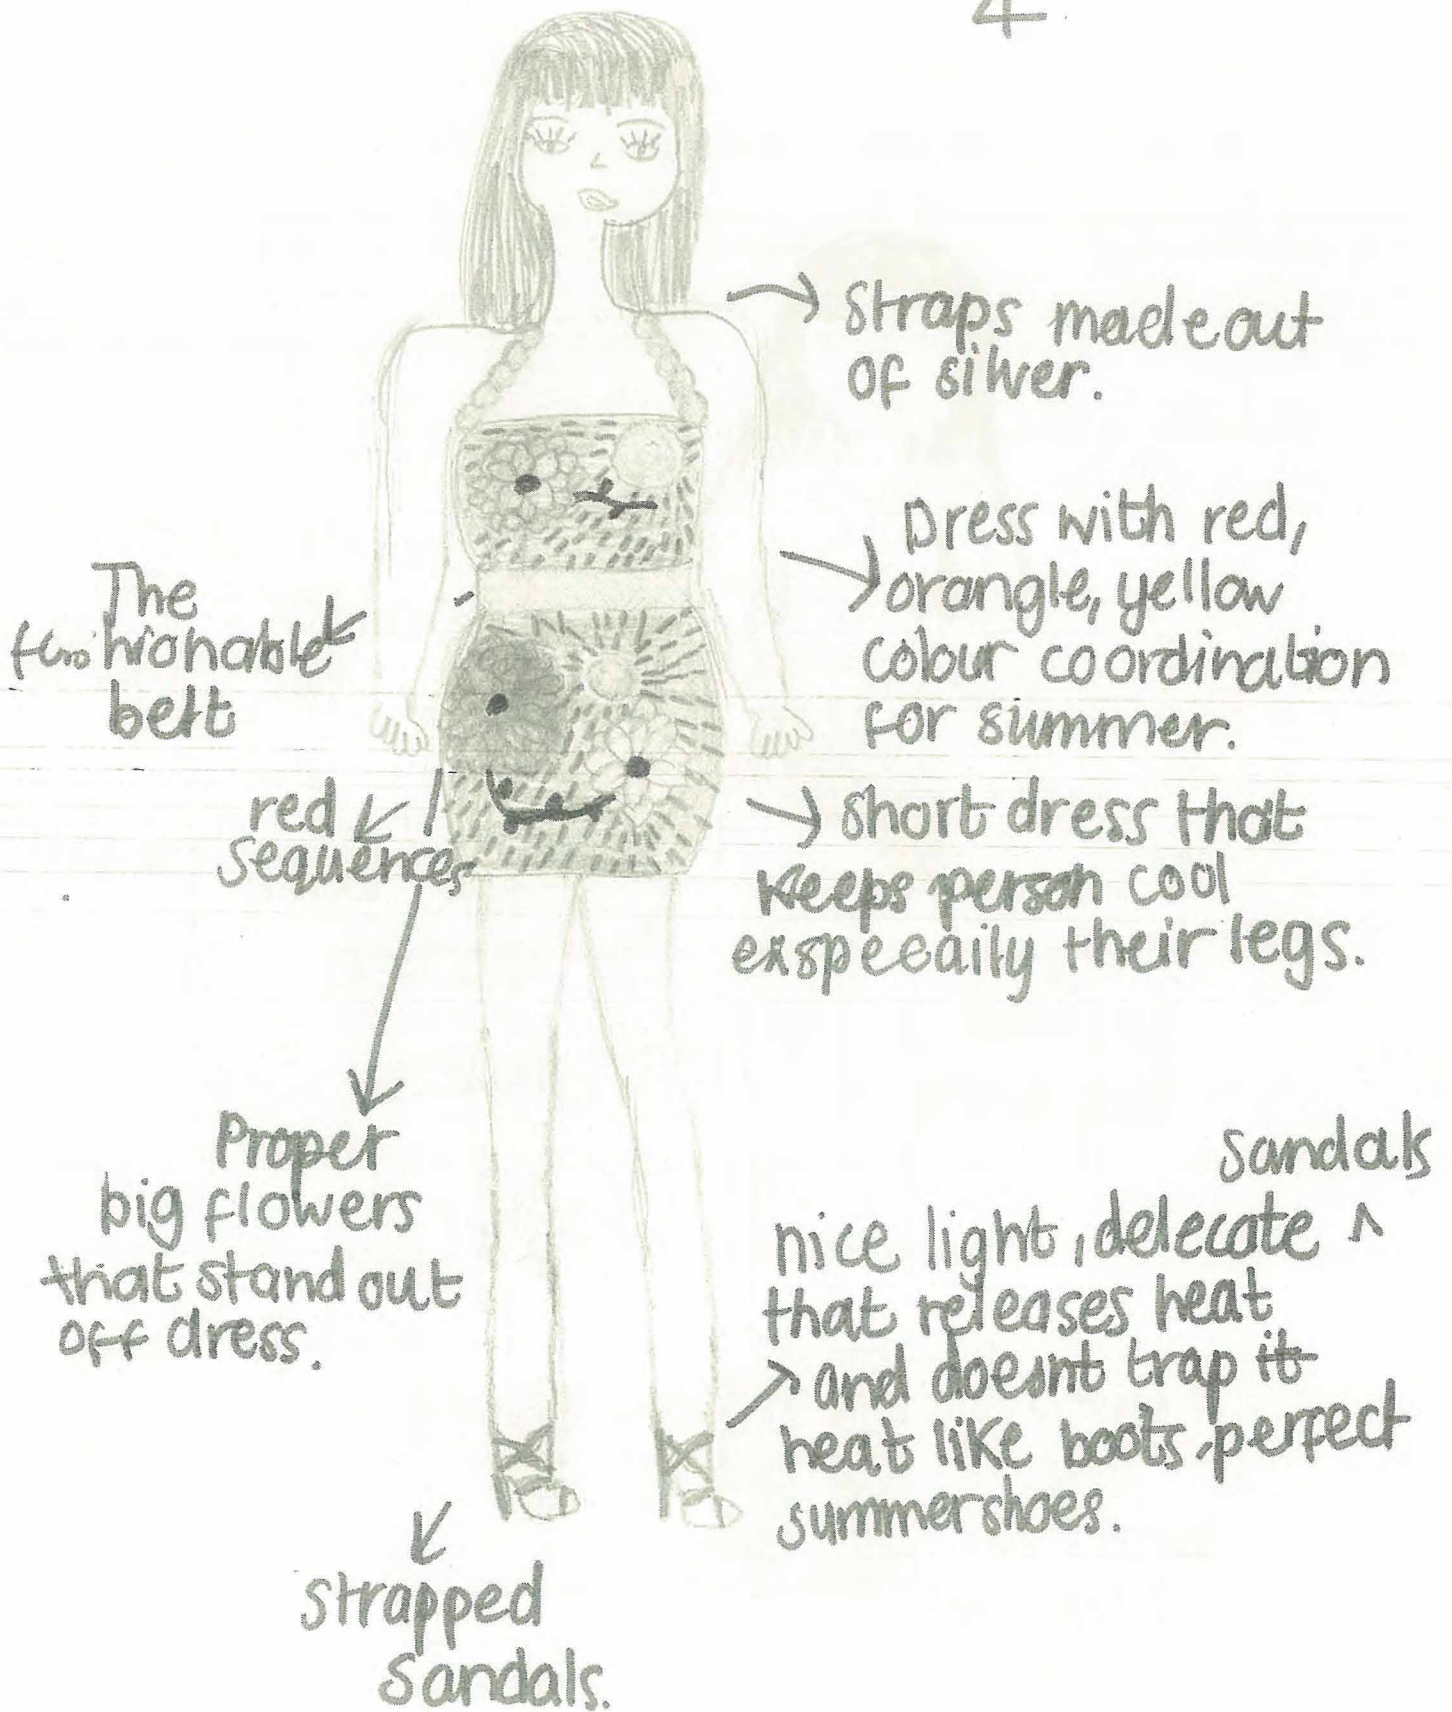 4
Straps made out
of silver.
Dress with red,
orangle, yellow
colour coordination
for summer.
The
fashionable
belt
red
sequences
short dress that
keeps person cool
exspecaily their legs.
Proper
big flowers
that stand out
off dress.
sandals
nice light, delecate ^
that releases heat
and doesnt trap it
heat like boots, perfect
summer shoes.
Strapped
Sandals.